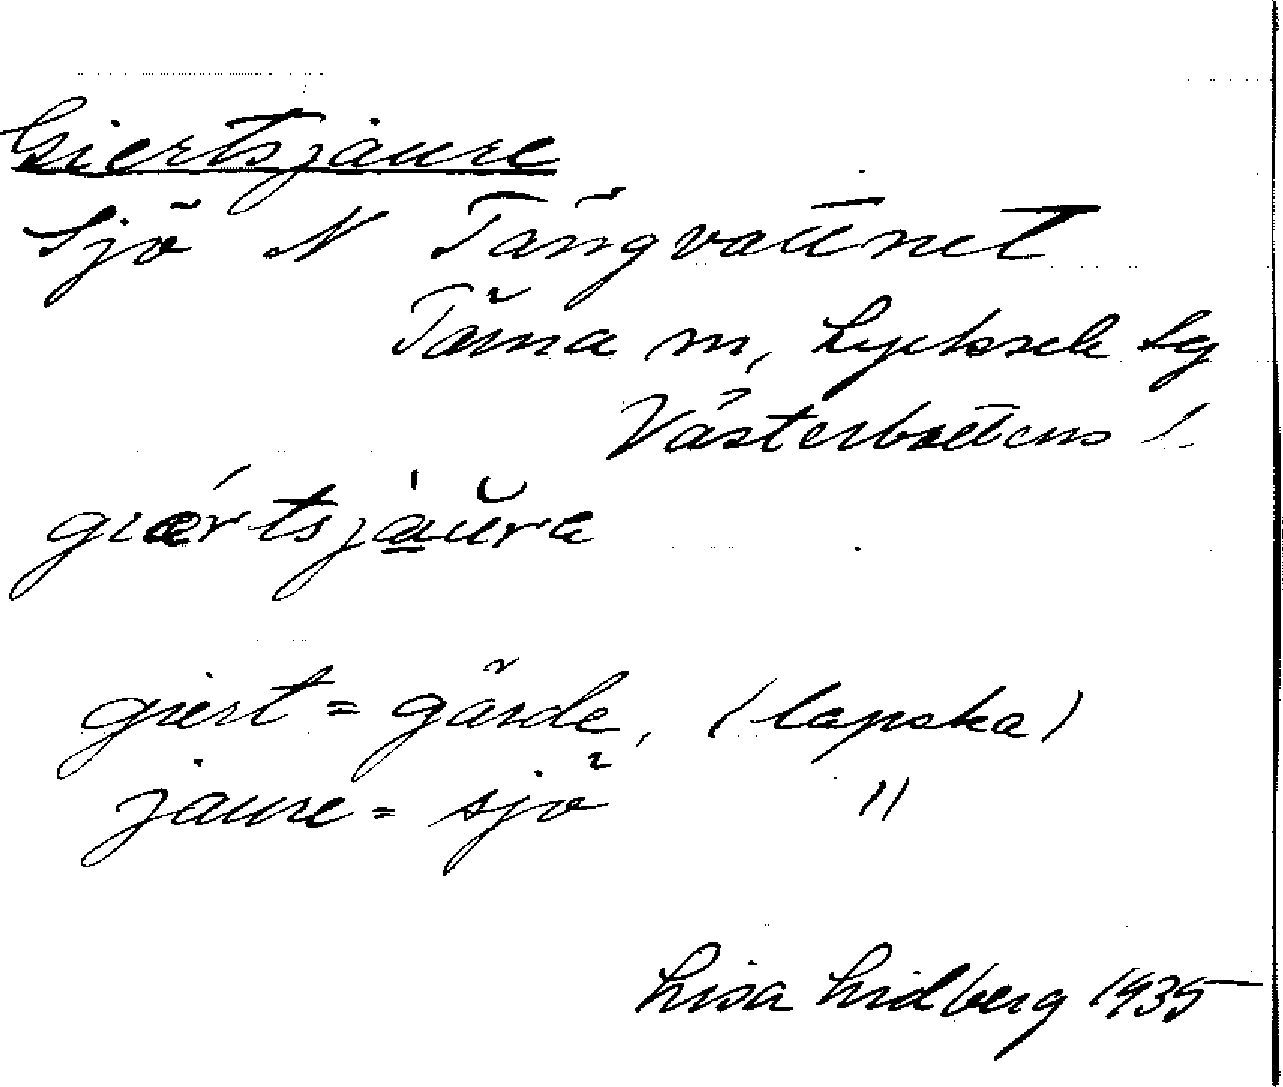 Giertsjaure
Sjö N Tängvattnet
Tärna sn, Lycksele lg
Västerbottens l.
giærtsjáu̯ra
giert = gärde, (lapska)
jaure = sjö "
Lisa Lidberg 1935